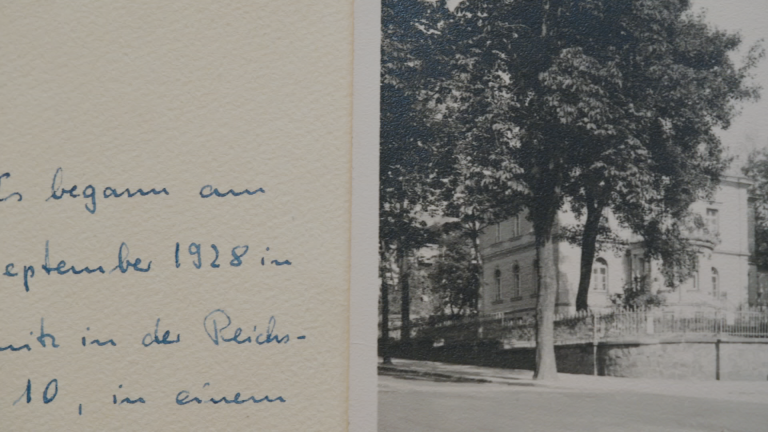 Es begann am
September 1928 in
nitz in der Reichs-
10, in einem